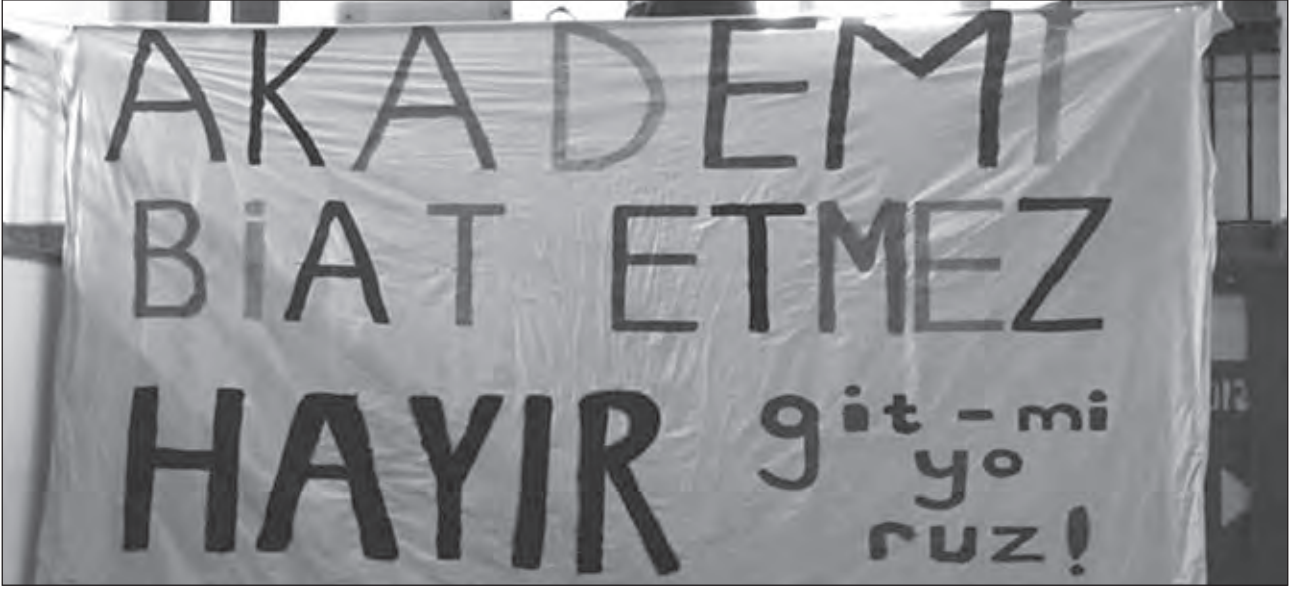 AKADEMİ
BİAT ETMEZ
HAYIR git-mi
yo
ruz!